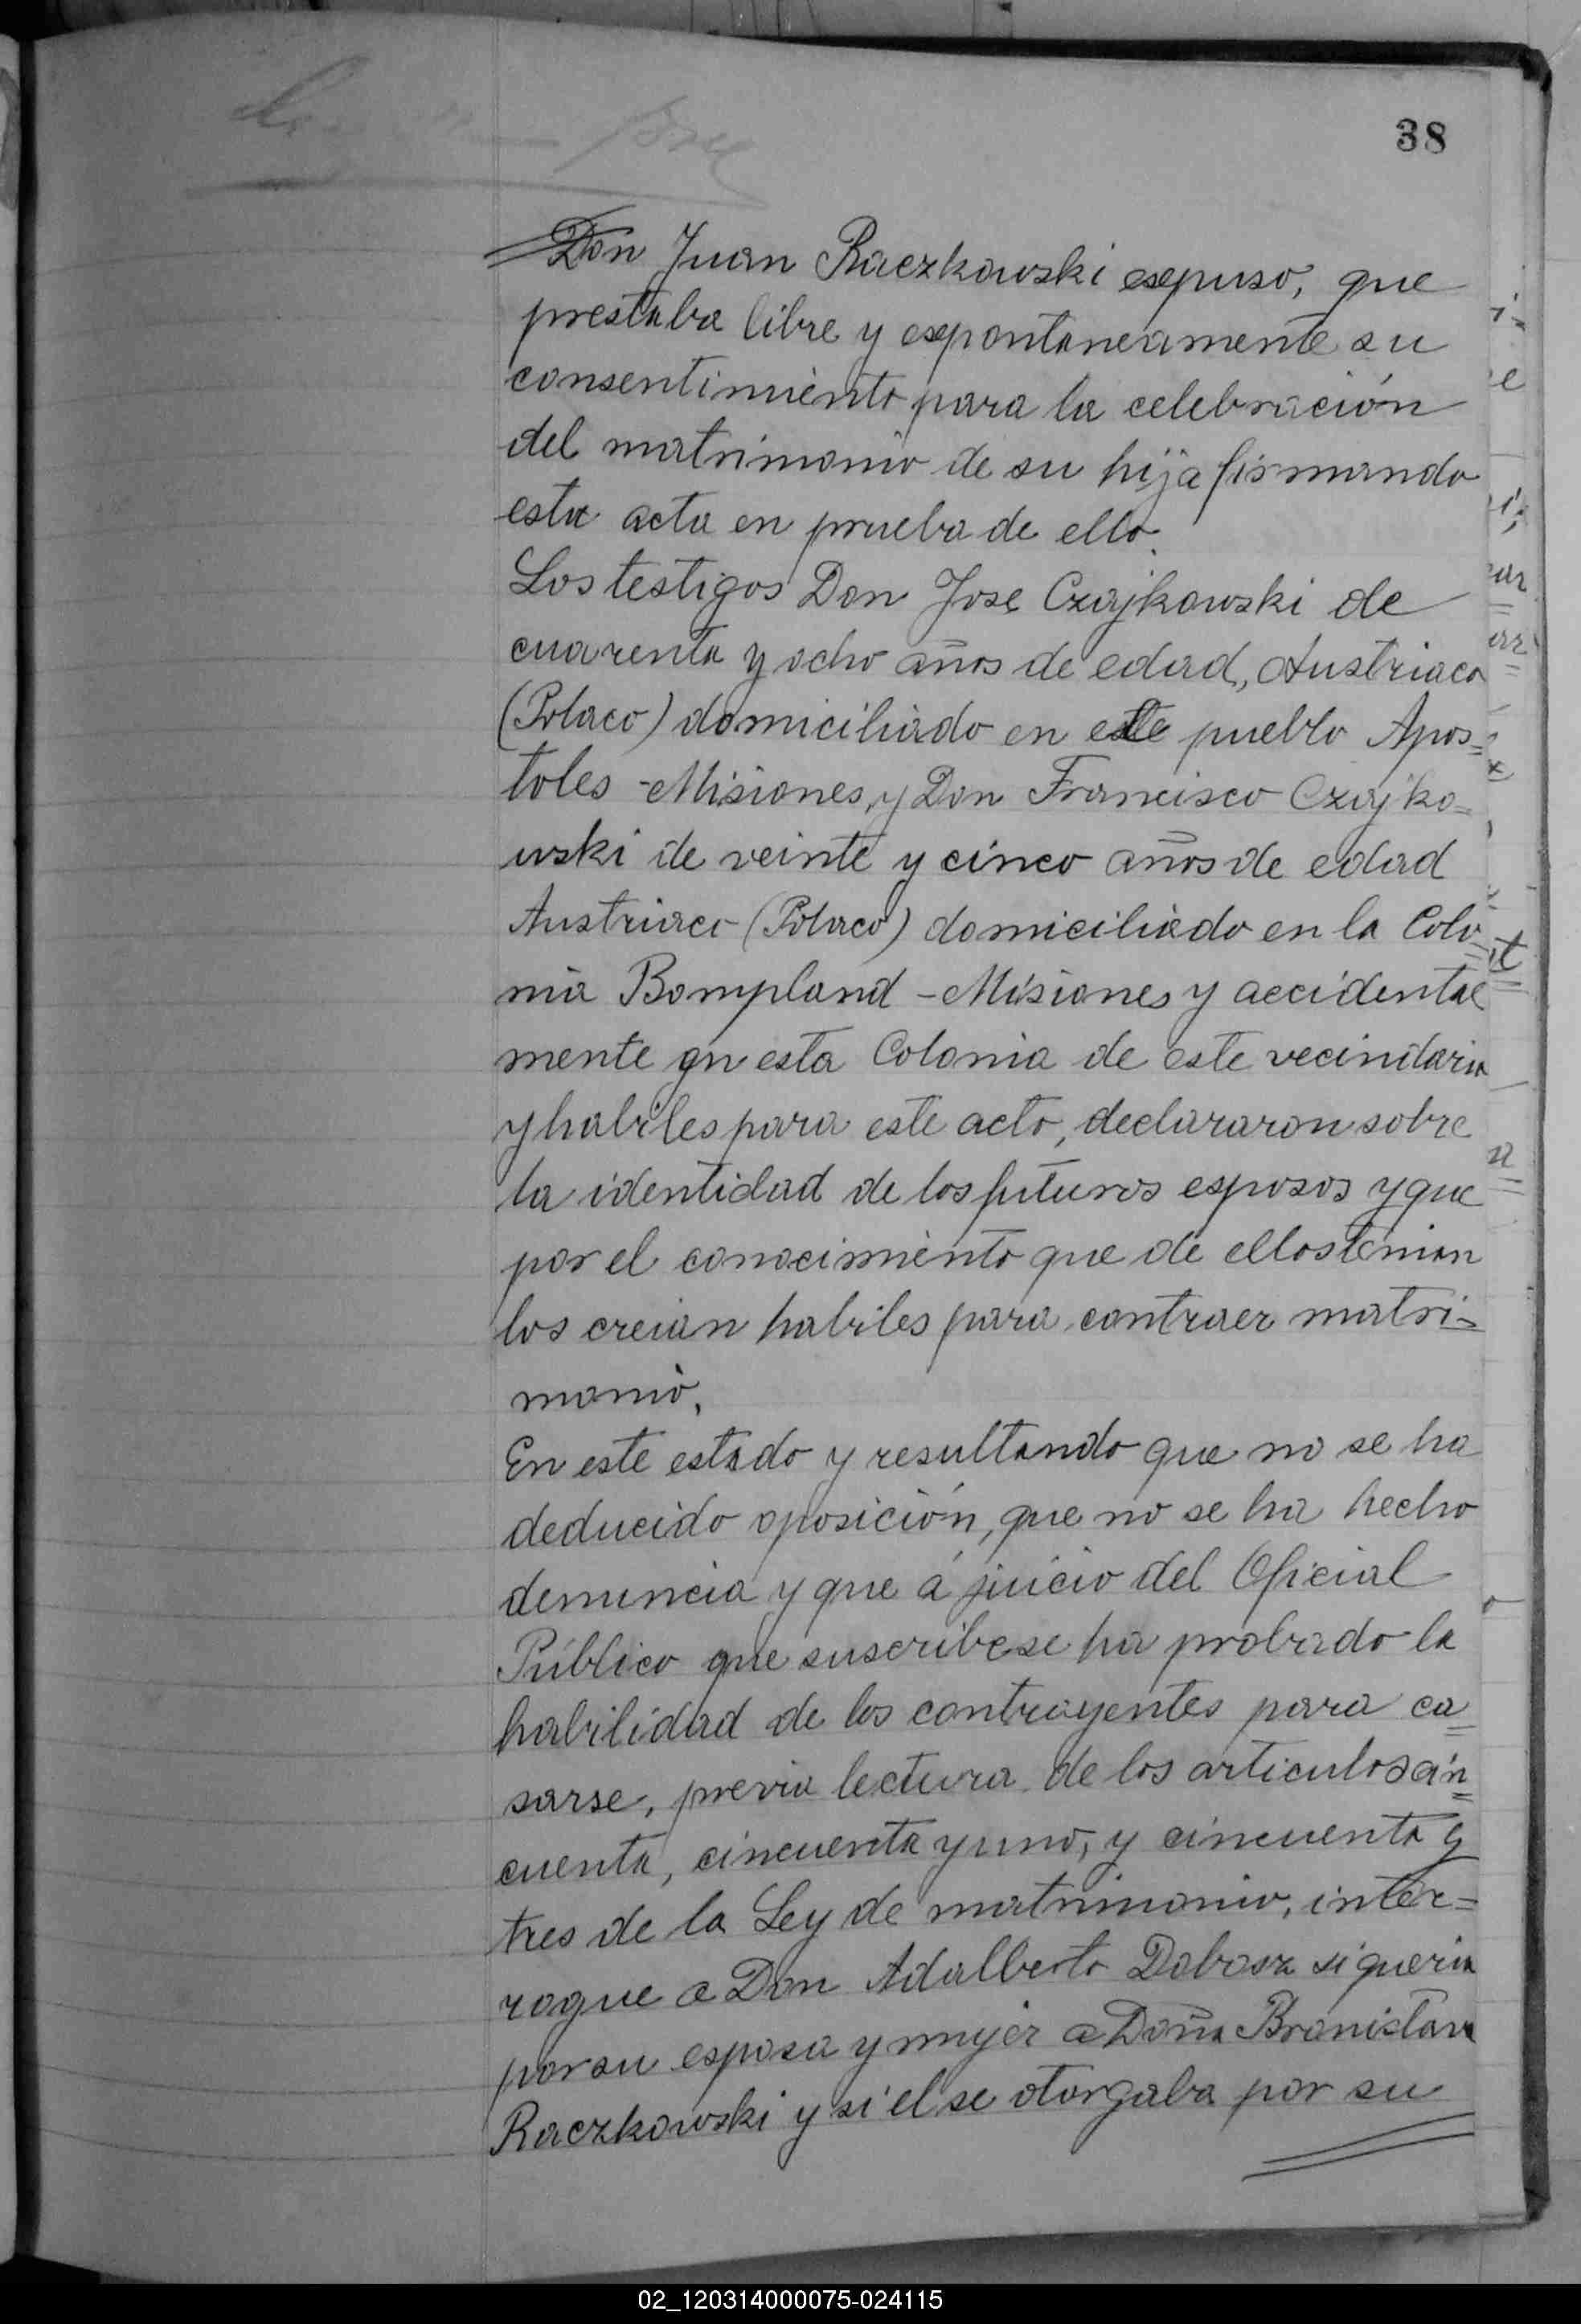 38
Don Juan Raczkowski esepuso, que
prestaba libre y esepontaneamente su
consentimiento para la celebración
del matrimonio de su hija firmando
esta acta en prueba de ello.
Los testigos Don Jose Czajkowski de
cuarenta y ocho años de edad, Austriaco
(Polaco) domiciliado en este pueblo Apos=
toles - Misiones, y Don Francisco Czajko=
wski de veinte y cinco años de edad
Austriaco (Polaco) domiciliado en la Colo=
nia Bompland - Misiones y accidental
mente en esta Colonia de este vecindario
y habiles para este acto, declararon sobre
la identidad de los futuros esposos y que
por el conocimiento que de ellos tenian
los creian habiles para contraer matri=
monio.
En este estado y resultando que no se ha
deducido oposición, que no se ha hecho
denuncia y que á juicio del Oficial
Público que suscribe se ha probado la
habilidad de los contrayentes para ca=
sarse, previa lectura de los articulos cin=
cuenta, cincuenta y uno, y cincuenta y
tres de la Ley de matrimonio, inter=
rogue a Don Adalberto Dobosz si queria
por su esposa y mujer a Doña Bronislava
Raczkowski y si el se otorgaba por su
02_120314000075-024115